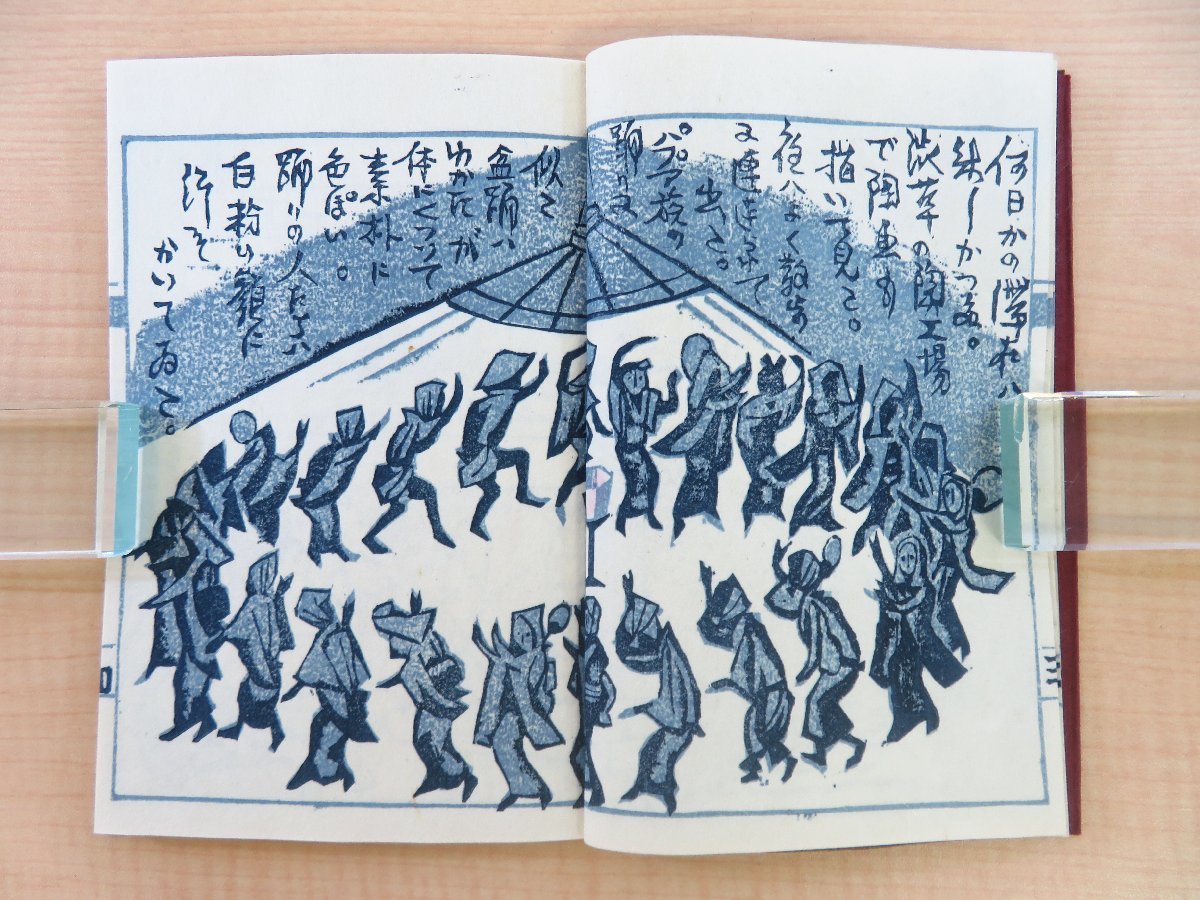 何日かの滞在ハ
楽しかつた。
渋草の陶工場
で陶画も
描いて見た。
夜ハよく散歩
又連達
出た。
パプア族の
踊りに
似た
盆踊ハ
ゆかたが
体にくつついて
素朴に
色ぽい。
踊りの人たちハ
白粉の顔に
汗を
かいてゐた。